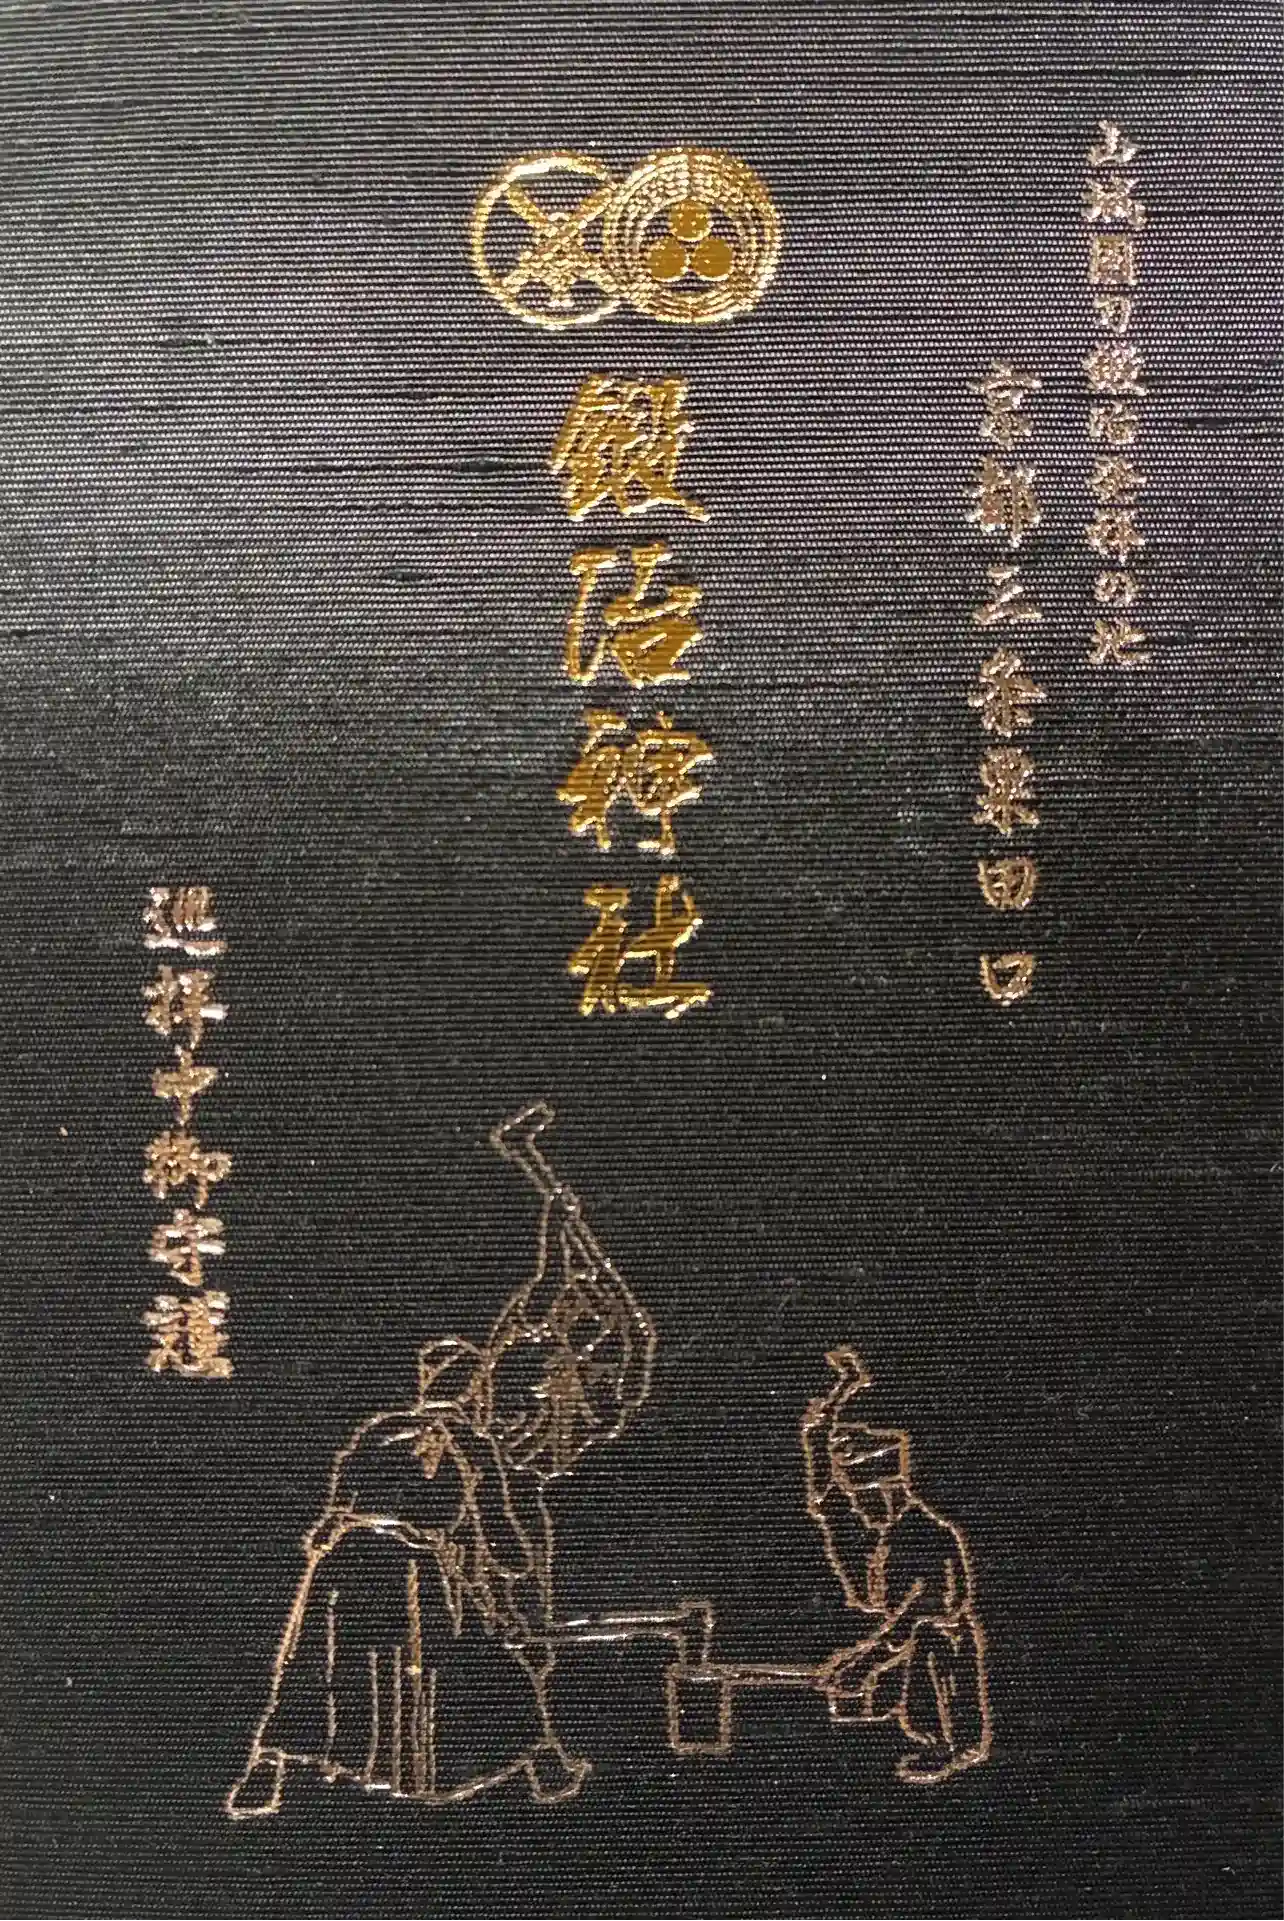 山城國刀鍛冶発祥の地
京都三条粟田口
鍛冶神社
遥拝中御守護